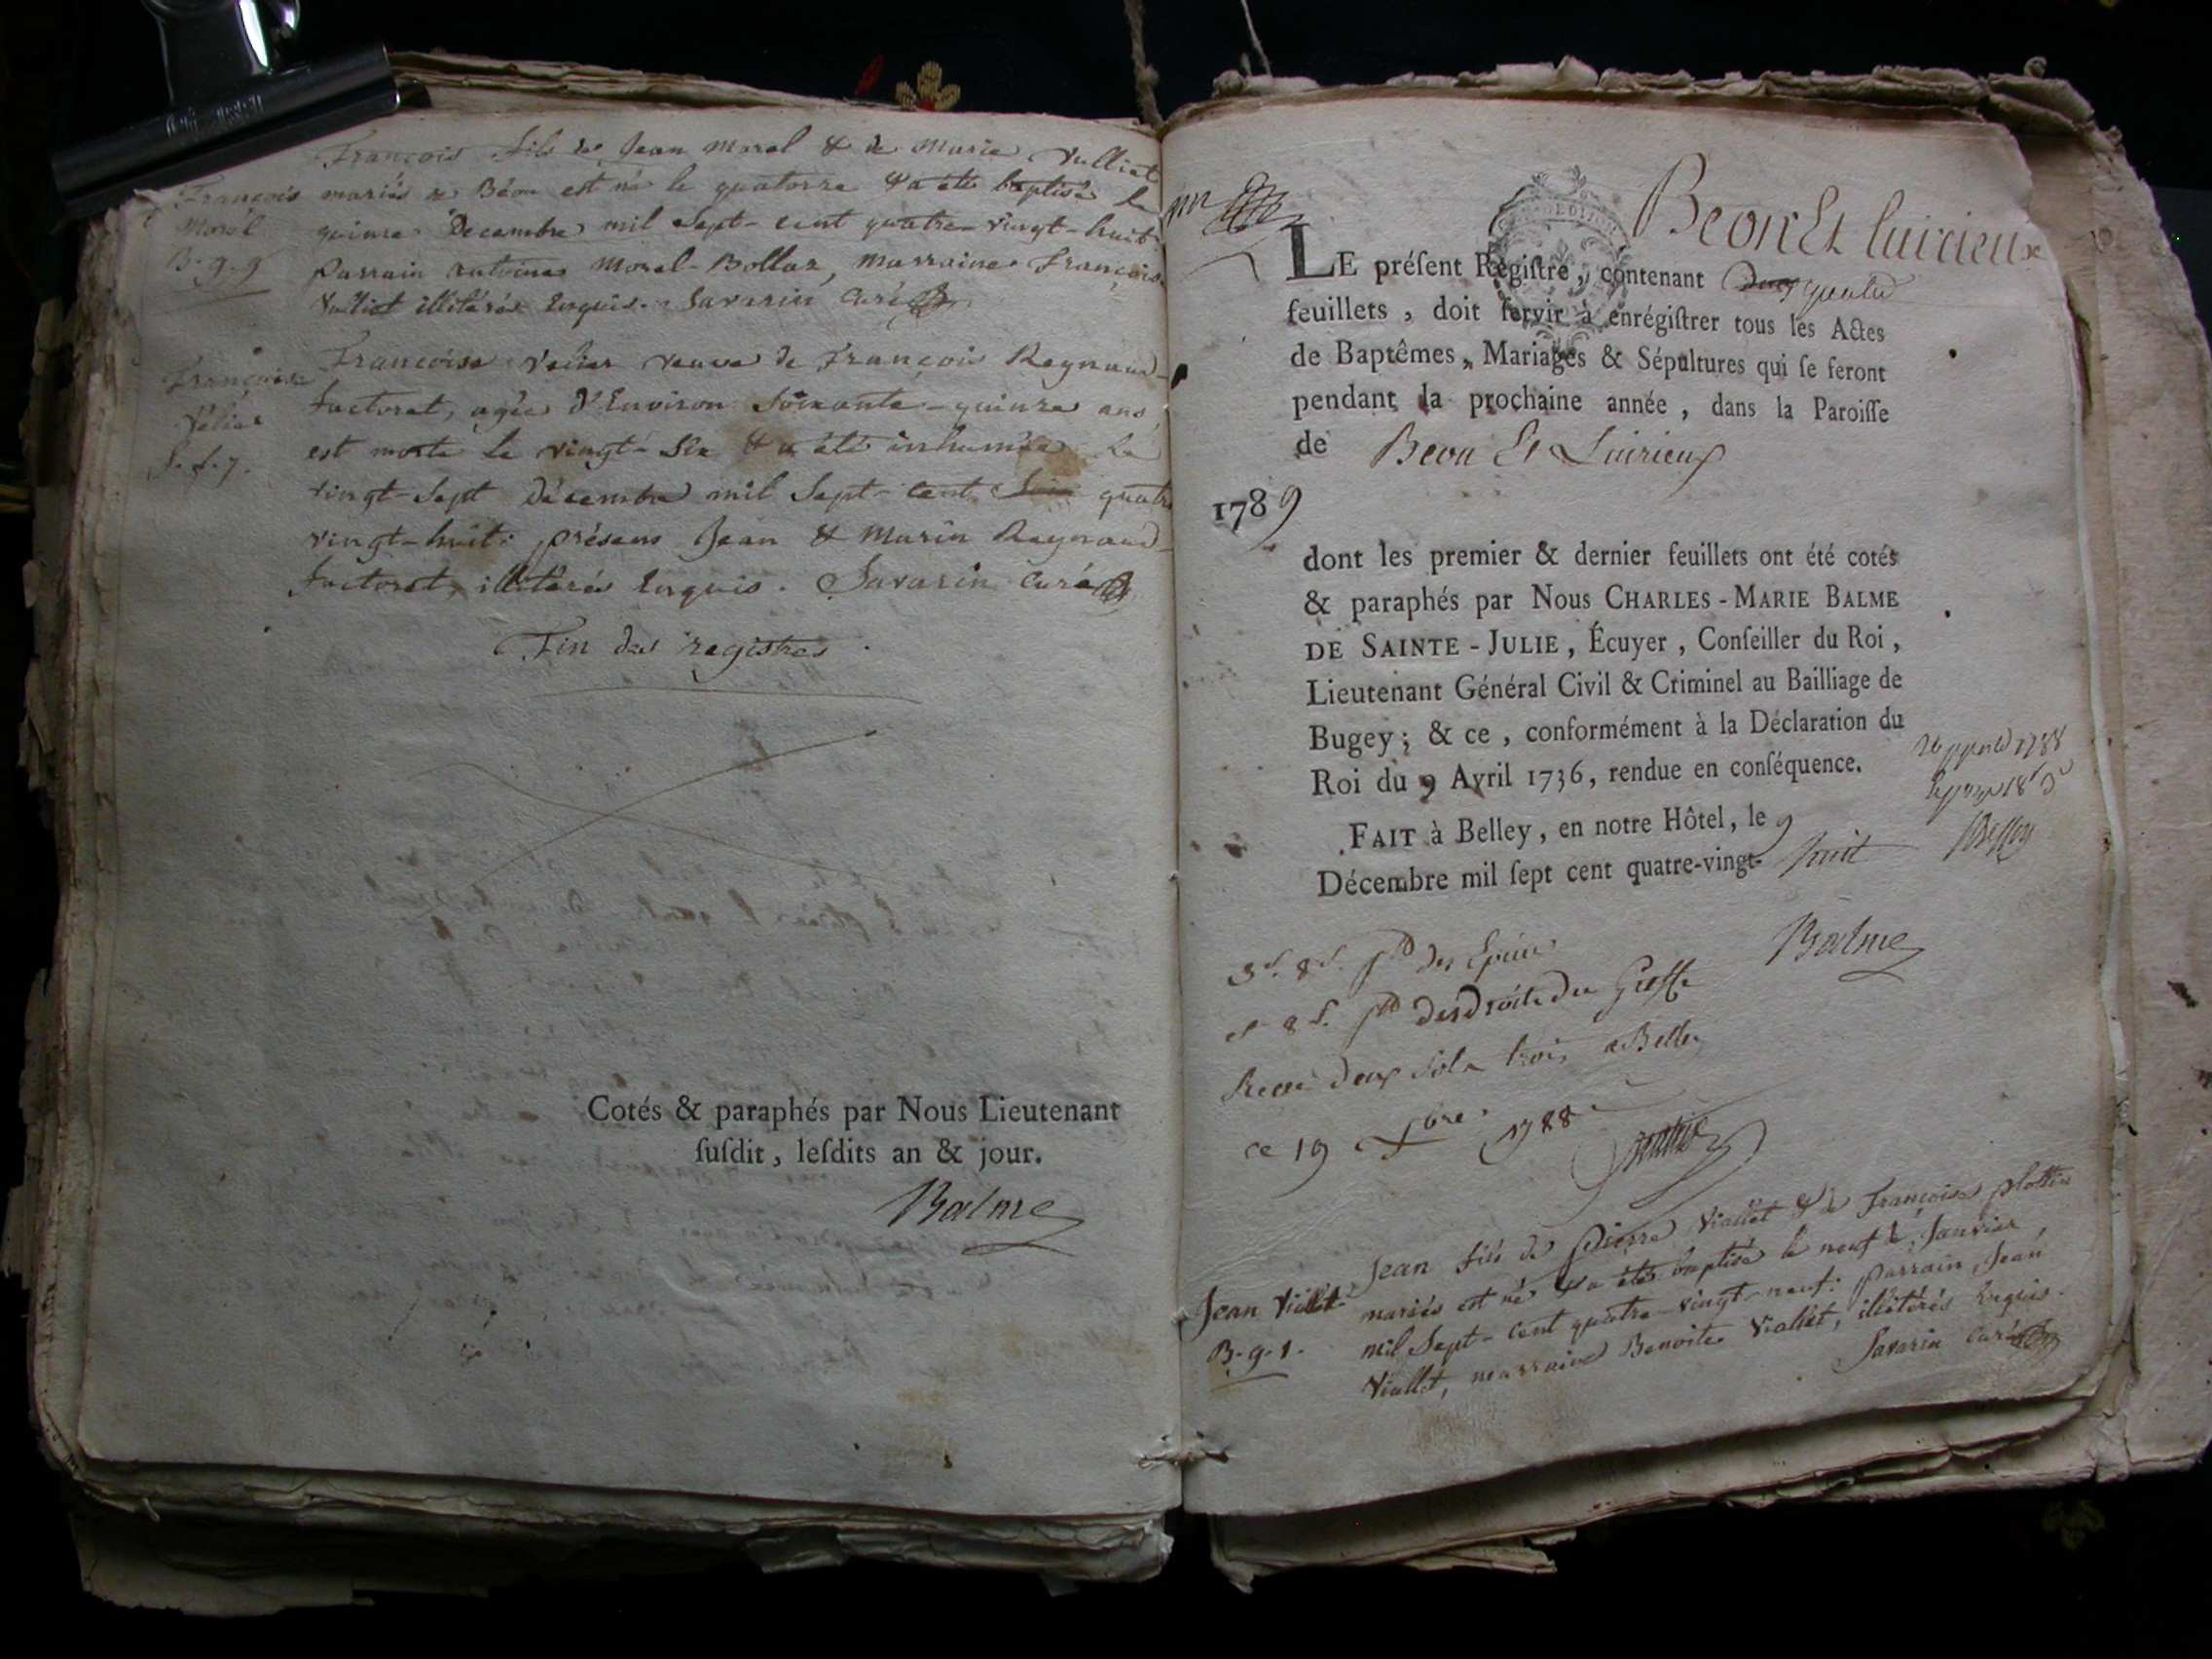 François fils de Jean Morel & de Marie Vulliet
François
Morel
B. 9. 9
mariés à Béon est né le quatorze & a été baptisé le
quinze Decembre mil sept-cent quatre-vingt-huit
Parrain antoine Morel-Bollaz, marraine Françoise
Vulliet illitérés enquis. Savarin Curé
Françoise
Vélier
S. f. 7.
Francoise Velier veuve de François Reynaud-
Juctoret, agée d'Environ soixante-quinze ans
est morte le vingt-six & a été inhumée le
vingt-sept décembre mil sept-cent quatre
vingt-huit: présens Jean & Marin Reynaud-
Juctoret, illitérés enquis. Savarin Curé
Fin des registres
Cotés & paraphés par Nous Lieutenant
ſuſdit, leſdits an & jour.
Balme
Beon Et Luirieux
LE préſent Régiſtre, contenant
feuillets, doit ſervir à enrégiſtrer tous les Actes
de Baptêmes, Mariages & Sépultures qui ſe feront
pendant la prochaine année, dans la Paroiſſe
de Beon Et Luirieux
1789
dont les premier & dernier feuillets ont été cotés
& paraphés par Nous CHARLES-MARIE BALME
DE SAINTE-JULIE, Écuyer, Conſeiller du Roi,
Lieutenant Général Civil & Criminel au Bailliage de
Bugey; & ce, conformément à la Déclaration du
Roi du 9 Avril 1736, rendue en conſéquence.
FAIT à Belley, en notre Hôtel, le 9
Décembre mil ſept cent quatre-vingt- huit
Balme
des Droits du Greffe
Receu deux sols trois a Belley
ce 19 Xbre 1788
Jean Viallet
B. 9. 1.
Jean fils de Pierre Viallet & de Françoise plottin
mariés est né & a été baptisé le neuf de Janvier
mil sept-cent quatre-vingt-neuf: parrain Jean
Viallet, marraine Benoite Viallet, illitérés enquis.
Savarin Curé